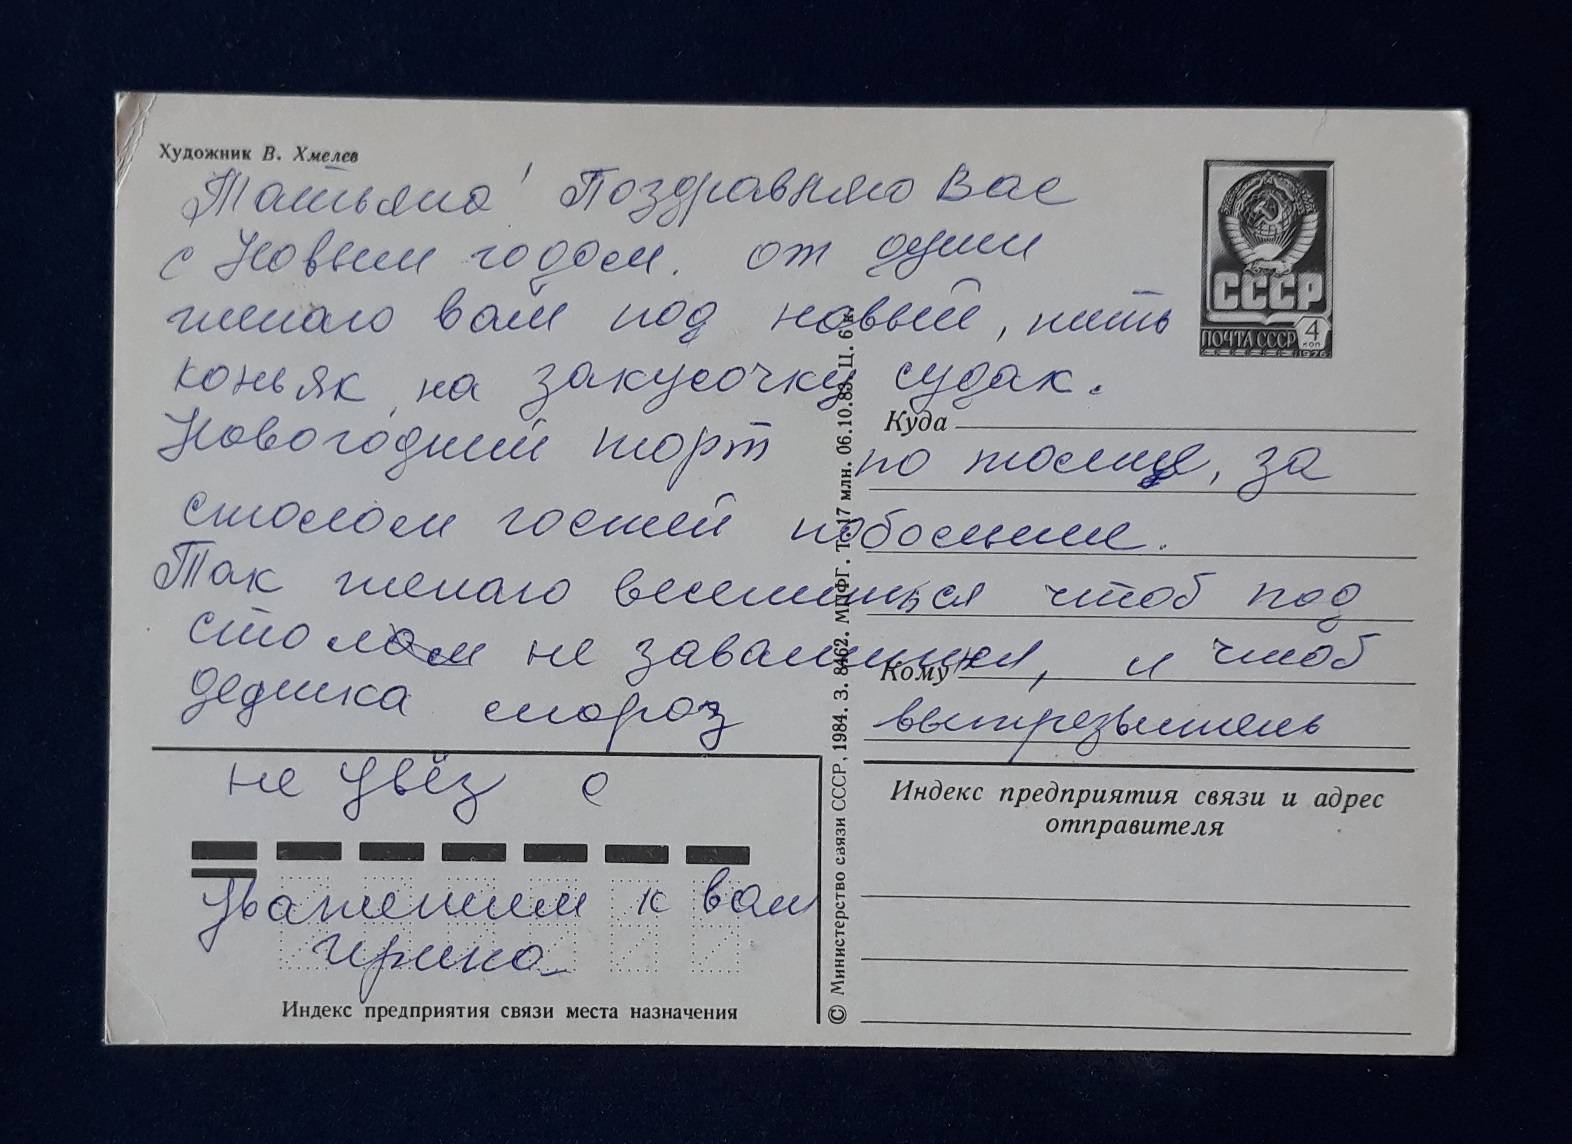 Художник В. Хмелев
Татьяна! Поздравляю Вас
с Новым годом. от души
желаю вам под новый, пить
коньяк, на закусочку судак.
Новогодний торт по толще, за
столом гостей поболше.
Так желаю веселиться чтоб под
столом не завалиться, и чтоб
дедшка мороз вытрезвитель
не увёз с
уважением к вам
Ирина
СССР
ПОЧТА СССР 4
КОП
1976
Куда
Кому
Индекс предприятия связи и адрес
отправителя
Индекс предприятия связи места назначения
© Министерство связи СССР, 1984. З. 8462. МПФГ. Т. 17 млн. 06.10.83. Ц. 6 к.